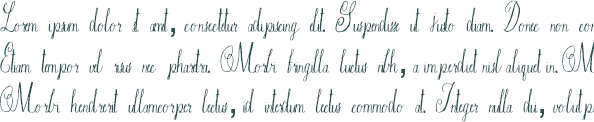 Lorem ipsum dolor sit amet, consectetur adipiscing elit. Suspendisse ut justo diam. Donec non con
Etiam tempor vel risus nec pharetra. Morbi fringilla luctus nibh, a imperdiet nisl aliquet in. M
Morbi hendrerit ullamcorper lectus, id interdum lectus commodo at. Integer nulla dui, volutp